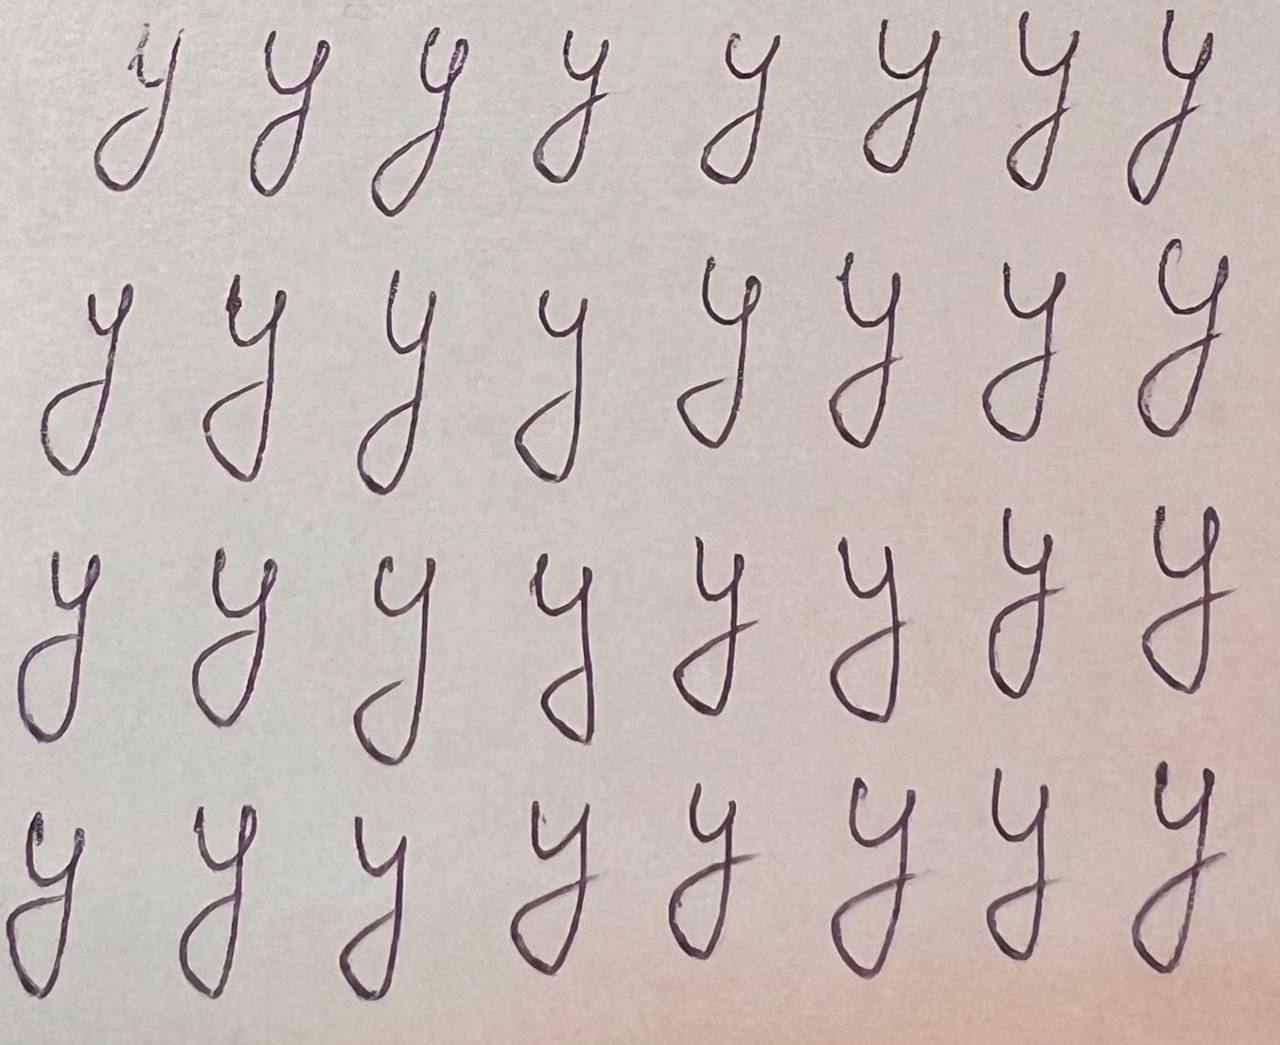 y y y y y y y y
y y y y y y y y
y y y y y y y y
y y y y y y y y